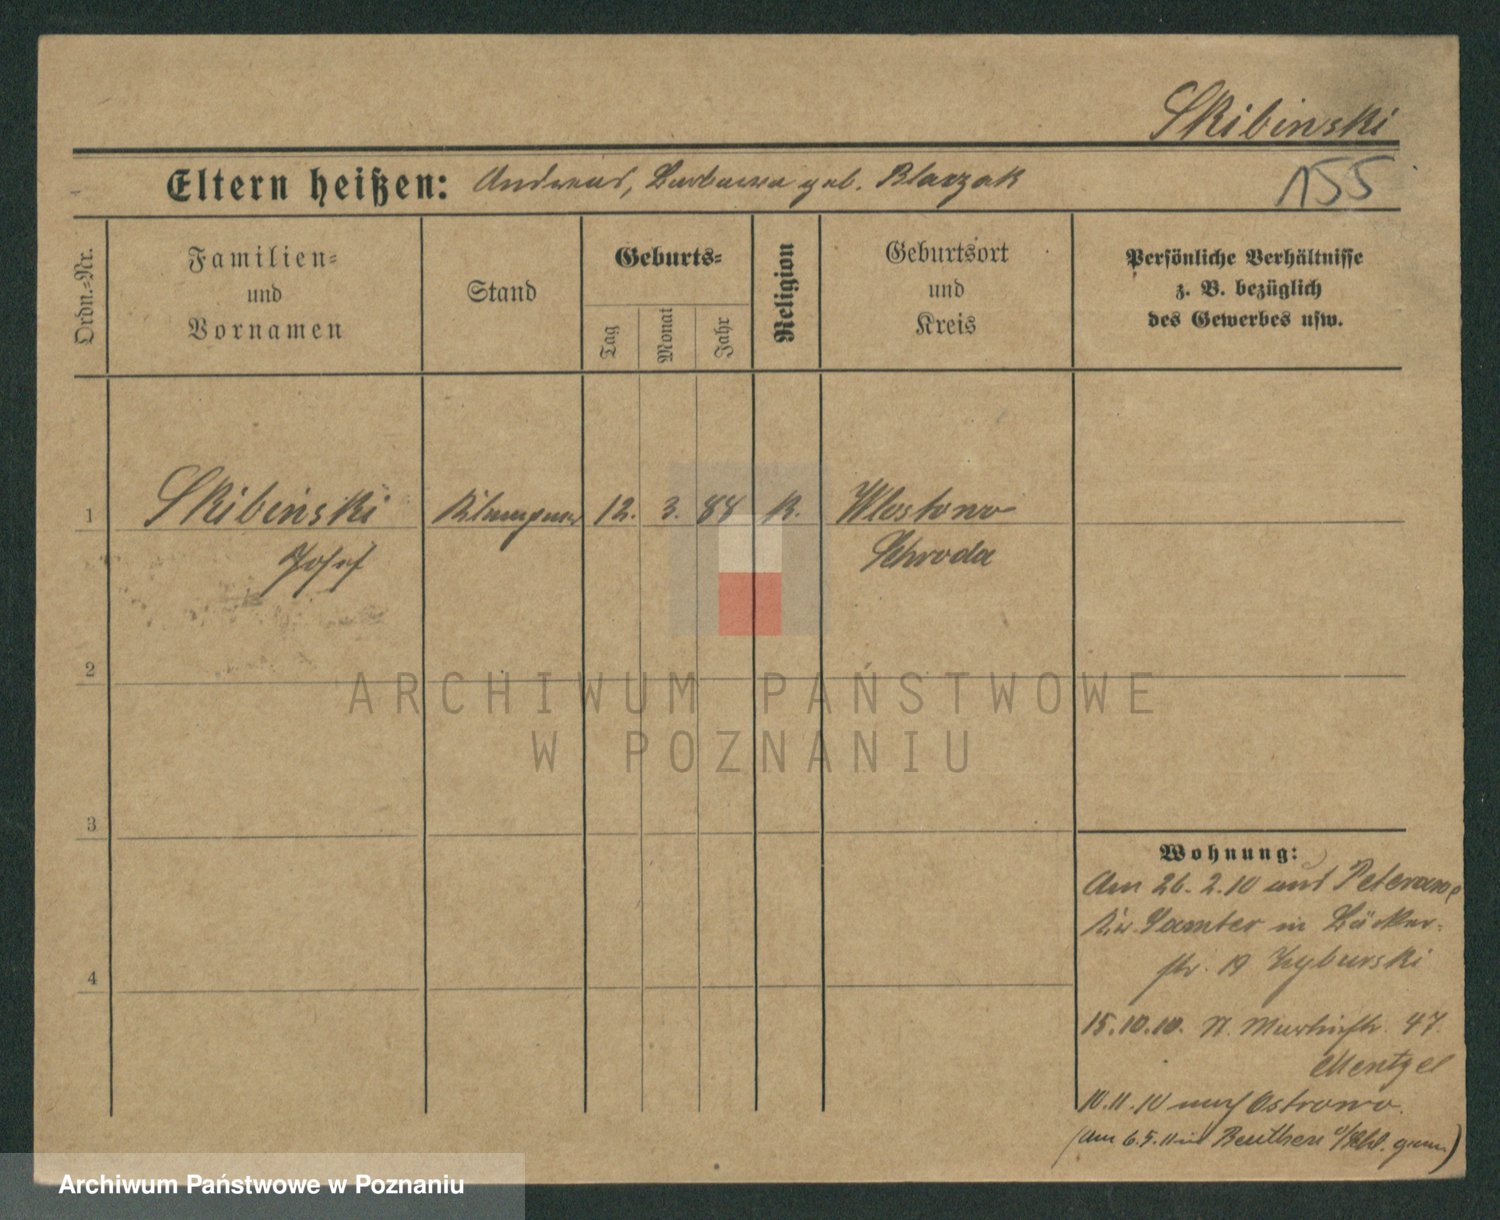 Skibinski
155
Eltern heißen: Andreas, Barbara geb. Blaszak
Ordn.-Nr.
Familien-
und
Vornamen
Stand
Geburts-
Tag
Monat
Jahr
Religion
Geburtsort
und
Kreis
Persönliche Verhältnisse
z. B. bezüglich
des Gewerbes usw.
1
Skibinski
Klempner
12. 3. 88
K.
Wlostowo
Josef
Schroda
2
3
4
Wohnung:
Am 26. 2. 10 aus
Samter in Bäcker-
str. 19 Zyburski
15.10.10. N. Martinstr. 47.
Mentzel
10.11.10 nach Ostrowo.
(Am 6.5.11 in Beuthen
ARCHIWUM PAŃSTWOWE
W POZNANIU
Archiwum Państwowe w Poznaniu